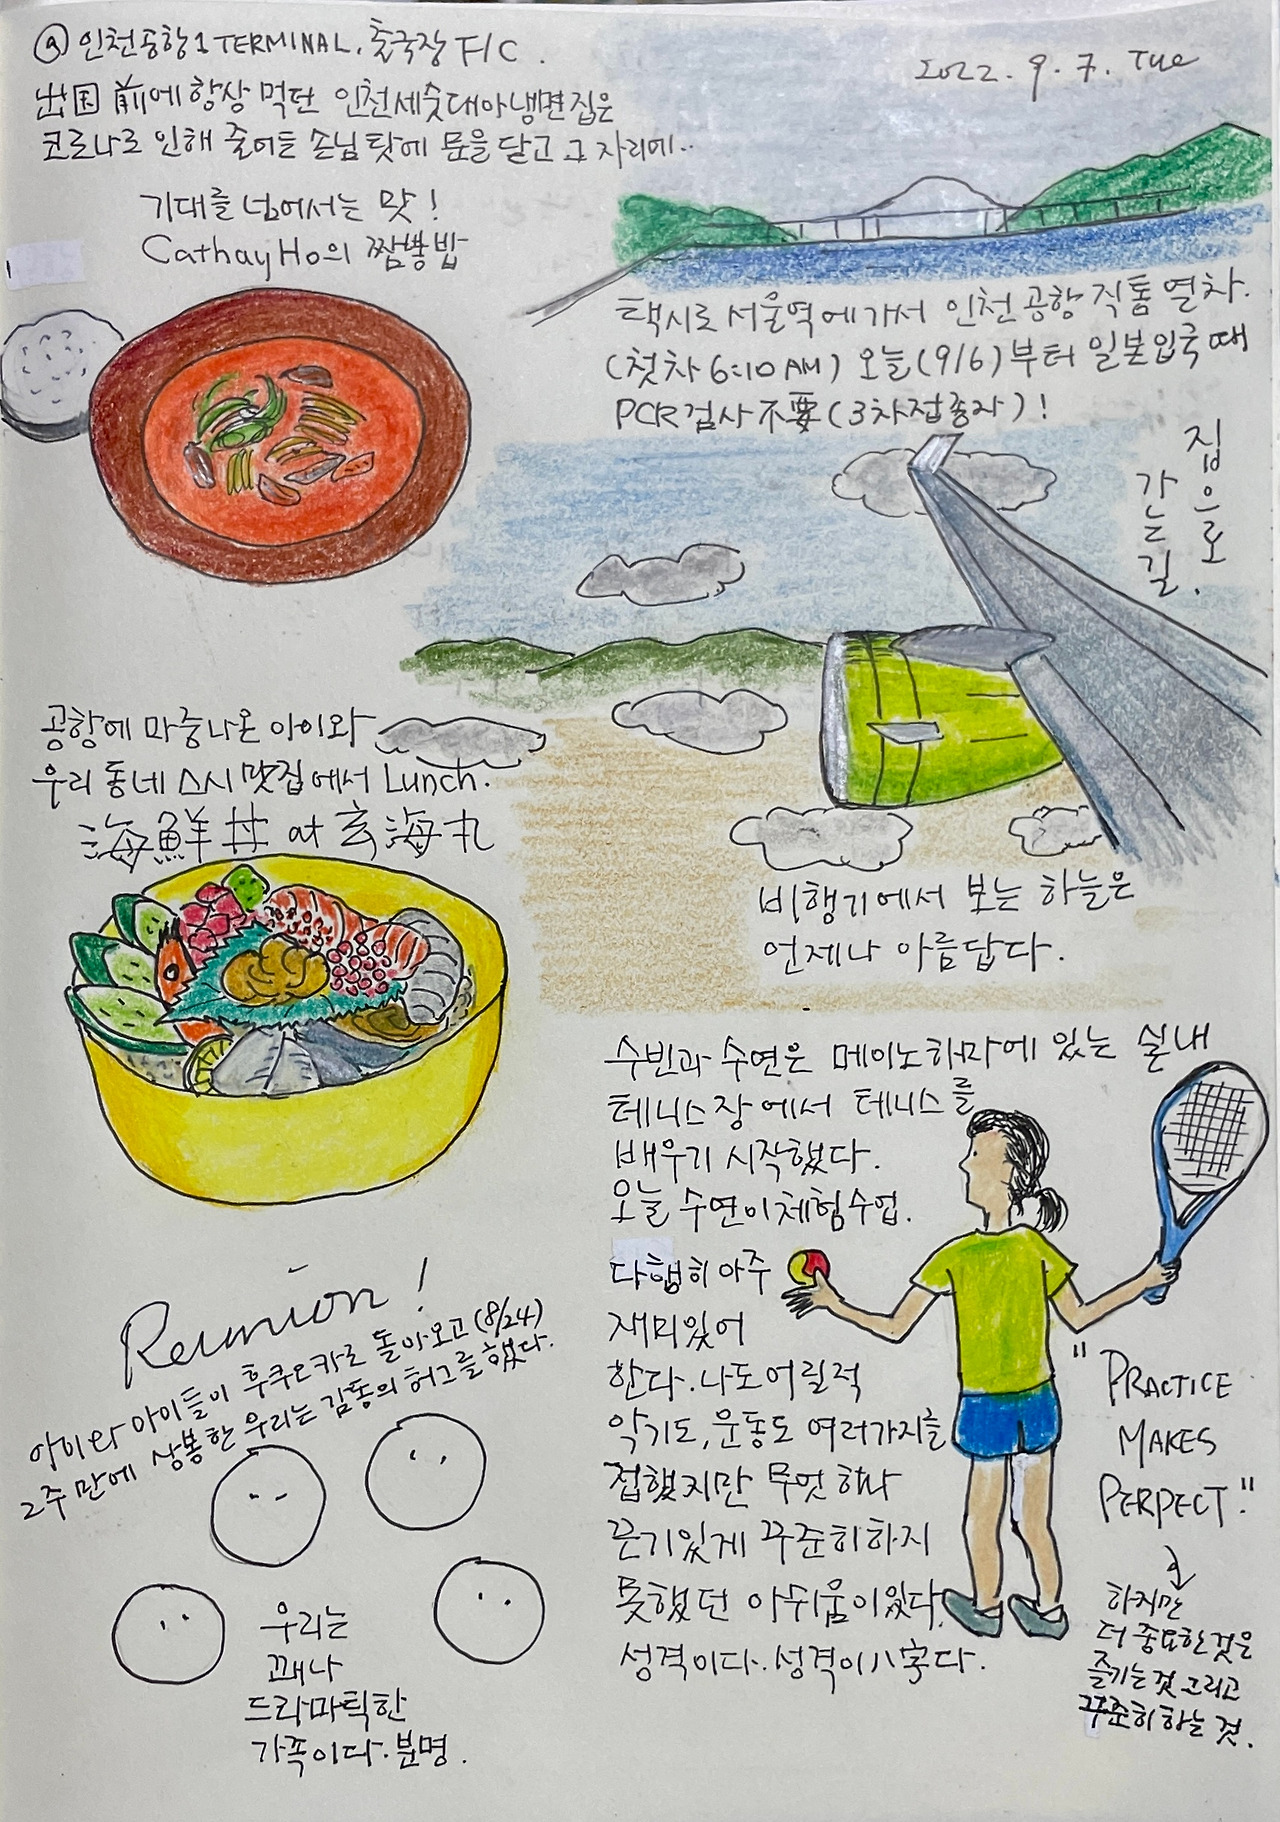 @ 인천공항1 TERMINAL, 출국장 F/C.
出国前에 항상 먹던 인천세숫대야냉면집은
코로나로 인해 줄어든 손님 탓에 문을 닫고 그 자리에..
기대를 넘어서는 맛!
Cathay Ho의 짬뽕밥
2022. 9. 7. Tue
택시로 서울역에가서 인천공항 직통열차.
(첫차 6:10 AM) 오늘(9/6)부터 일본입국때
PCR 검사 不要 (3차접종자)!
집으로
가는길.
비행기에서 보는 하늘은
언제나 아름답다.
공항에 마중나온 아이와
우리 동네 스시 맛집에서 Lunch.
海鮮丼 at 玄海丸
Reunion!
아이와 아이들이 후쿠오카로 돌아오고 (8/24)
2주만에 상봉한 우리는 감동의 허그를 했다.
우리는
꽤나
드라마틱한
가족이다. 분명.
수빈과 수연은 메이노하마에 있는 실내
테니스장에서 테니스를
배우기 시작했다.
오늘 수연이 체험수업.
다행히 아주
재미있어
한다. 나도 어릴적
악기도, 운동도 여러가지를
접했지만 무엇 하나
끈기있게 꾸준히하지
못했던 아쉬움이 있다.
성격이다. 성격이 八字다.
"PRACTICE
MAKES
PERPECT."
하지만
더 중요한 것은
즐기는 것 그리고
꾸준히 하는 것.